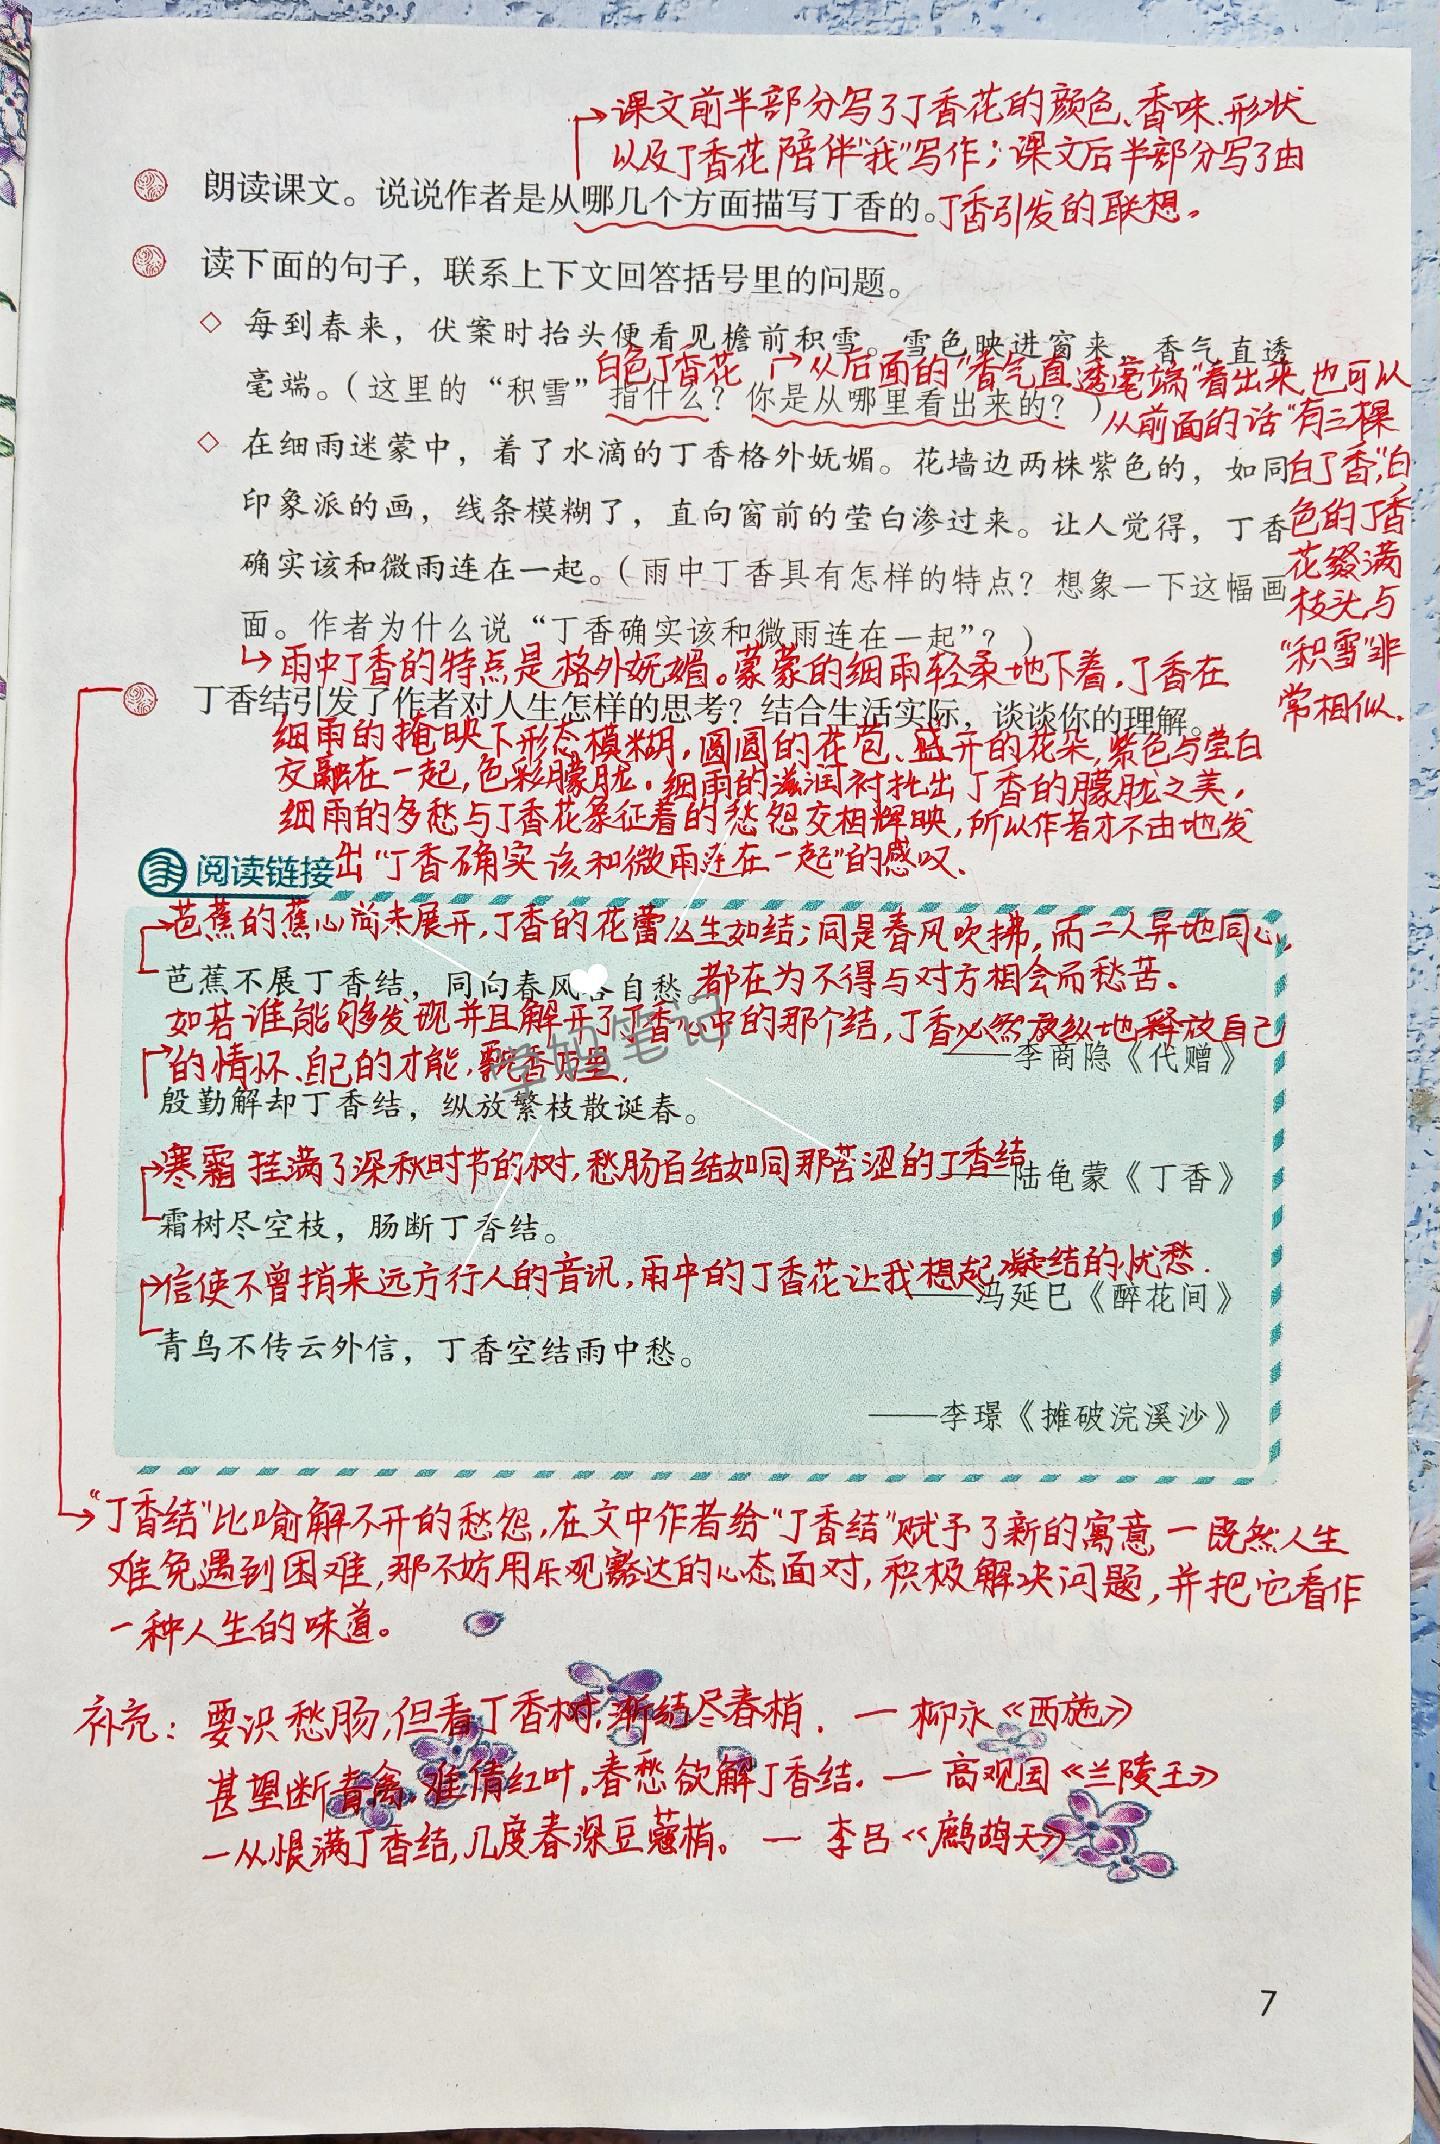 课文前半部分写了丁香花的颜色、香味、形状
以及丁香花陪伴“我”写作；课文后半部分写了由
丁香引发的联想。
朗读课文。说说作者是从哪几个方面描写丁香的。
读下面的句子，联系上下文回答括号里的问题。
每到春来，伏案时抬头便看见檐前积雪。雪色映进窗来，香气直透
白色丁香花 从后面的“香气直透毫端”看出来，也可以
毫端。（这里的“积雪”指什么？你是从哪里看出来的？）
从前面的话“有三棵
白丁香”，白
色的丁香
花缀满
枝头，与
“积雪”非
常相似.
在细雨迷蒙中，着了水滴的丁香格外妩媚。花墙边两株紫色的，如同
印象派的画，线条模糊了，直向窗前的莹白渗过来。让人觉得，丁香
确实该和微雨连在一起。（雨中丁香具有怎样的特点？想象一下这幅画
面。作者为什么说“丁香确实该和微雨连在一起”？）
雨中丁香的特点是格外妩媚。蒙蒙的细雨轻柔地下着，丁香在
丁香结引发了作者对人生怎样的思考？结合生活实际，谈谈你的理解。
细雨的掩映下形态模糊，圆圆的花苞、盛开的花朵，紫色与莹白
交融在一起，色彩朦胧．细雨的滋润衬托出丁香的朦胧之美，
细雨的多愁与丁香花象征着的愁怨交相辉映，所以作者才不由地发
出“丁香确实该和微雨连在一起”的感叹．
阅读链接
芭蕉的蕉心尚未展开，丁香的花蕾丛生如结；同是春风吹拂，而二人异地同心，
芭蕉不展丁香结，同向春风各自愁。
都在为不得与对方相会而愁苦。
如若谁能够发现并且解开了丁香心中的那个结，丁香必然放纵地释放自己
——李商隐《代赠》
的情怀、自己的才能，飘香万里．
殷勤解却丁香结，纵放繁枝散诞春。
寒霜挂满了深秋时节的树，愁肠百结如同那苦涩的丁香结
——陆龟蒙《丁香》
霜树尽空枝，肠断丁香结。
信使不曾捎来远方行人的音讯，雨中的丁香花让我想起凝结的忧愁．
——冯延巳《醉花间》
青鸟不传云外信，丁香空结雨中愁。
——李璟《摊破浣溪沙》
学妈笔记
“丁香结”比喻解不开的愁怨，在文中作者给“丁香结”赋予了新的寓意，一既然人生
难免遇到困难，那不妨用乐观豁达的心态面对，积极解决问题，并把它看作
一种人生的味道。
补充：要识愁肠，但看丁香树，渐结尽春梢．— 柳永《西施》
甚望断青禽，难倩红叶，春愁欲解丁香结．— 高观国《兰陵王》
一从恨满丁香结，几度春深豆蔻梢。— 李吕《鹧鸪天》
7